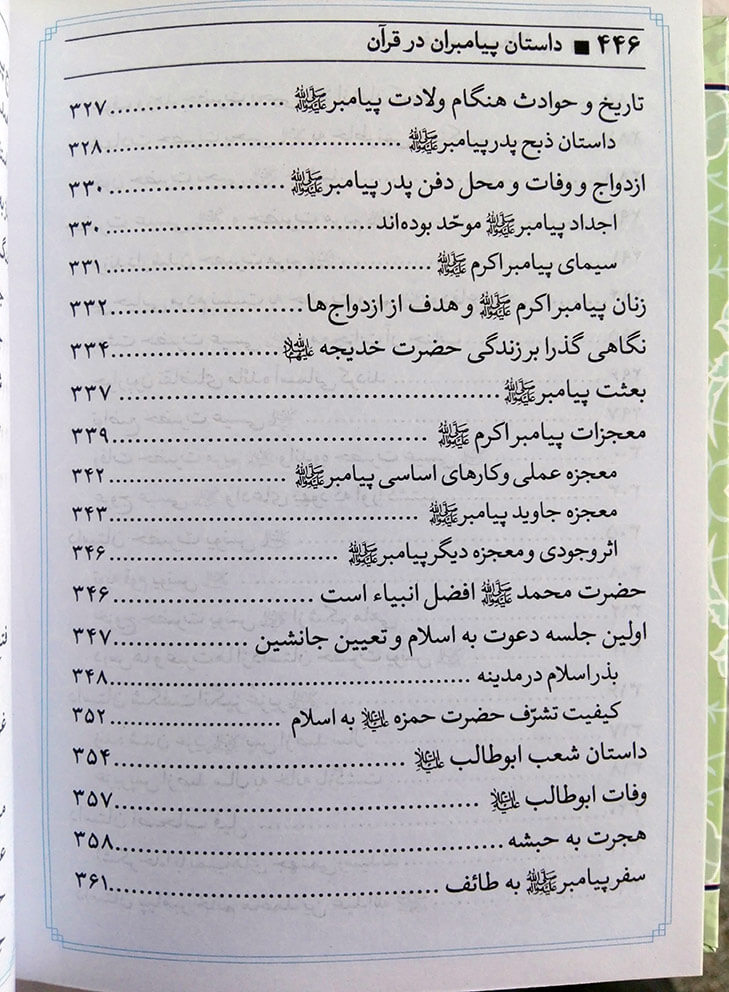 ۴۴۶ ■ داستان پیامبران در قرآن
تاریخ و حوادث هنگام ولادت پیامبرﷺ ........................ ۳۲۷
داستان ذبح پدر پیامبرﷺ ........................ ۳۲۸
ازدواج و وفات و محل دفن پدر پیامبرﷺ ........................ ۳۳۰
اجداد پیامبرﷺ موحّد بوده‌اند ........................ ۳۳۰
سیمای پیامبر اکرم ﷺ ........................ ۳۳۱
زنان پیامبر اکرم ﷺ و هدف از ازدواج‌ها ........................ ۳۳۲
نگاهی گذرا بر زندگی حضرت خدیجه ........................ ۳۳۴
بعثت پیامبرﷺ ........................ ۳۳۷
معجزات پیامبر اکرم ﷺ ........................ ۳۳۹
معجزه عملی و کارهای اساسی پیامبرﷺ ........................ ۳۴۲
معجزه جاوید پیامبرﷺ ........................ ۳۴۳
اثر وجودی و معجزه دیگر پیامبرﷺ ........................ ۳۴۶
حضرت محمد ﷺ افضل انبیاء است ........................ ۳۴۶
اولین جلسه دعوت به اسلام و تعیین جانشین ........................ ۳۴۷
بذر اسلام در مدینه ........................ ۳۴۸
کیفیت تشرّف حضرت حمزه علیه‌السلام به اسلام ........................ ۳۵۲
داستان شعب ابوطالب علیه‌السلام ........................ ۳۵۴
وفات ابوطالب علیه‌السلام ........................ ۳۵۷
هجرت به حبشه ........................ ۳۵۸
سفر پیامبرﷺ به طائف ........................ ۳۶۱